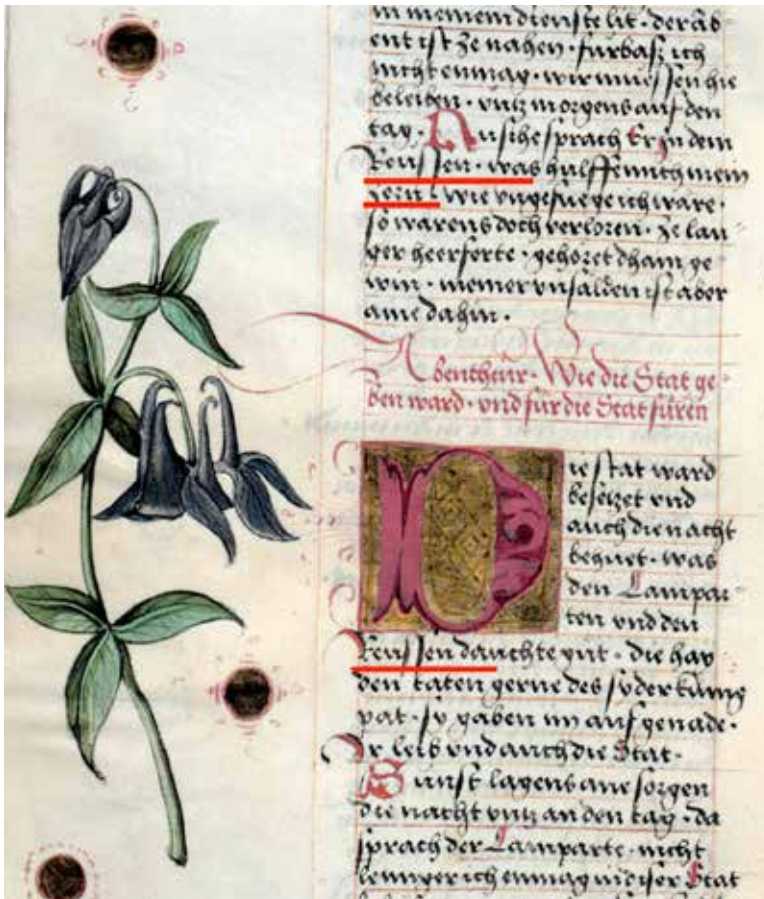 in meinem dienste lit · der ab
ent ist ze nahen · furbas ich
nicht enmag · wir muessen hie
beleiben · vntz morgens auf den
tag · Auf sprach Er zu dem
Reussen · was hulffe mich mein
zorn · wie vngefuege ich ware ·
so warens doch verloren · ze lan
ger heerferte · gehöret dham ge
win · meiner vnsälden ist aber
aine dahin ·
Abentheur · Wie die Stat ge
ben ward · vnd für die Stat füren
Die stat ward
besetzet vnd
auch die nacht
behuet · was
den Lampar
ten vnd den
Reussen dauchte gut · die hay
den taten gerne des sy der kunig
pat · sy gaben im auf genade ·
Ir leib vnd auch die Stat ·
Sunst lagens ane sorgen
die nacht vntz an den tag · da
sprach der Lamparte · nicht
lennger ich enmag in diser Stat